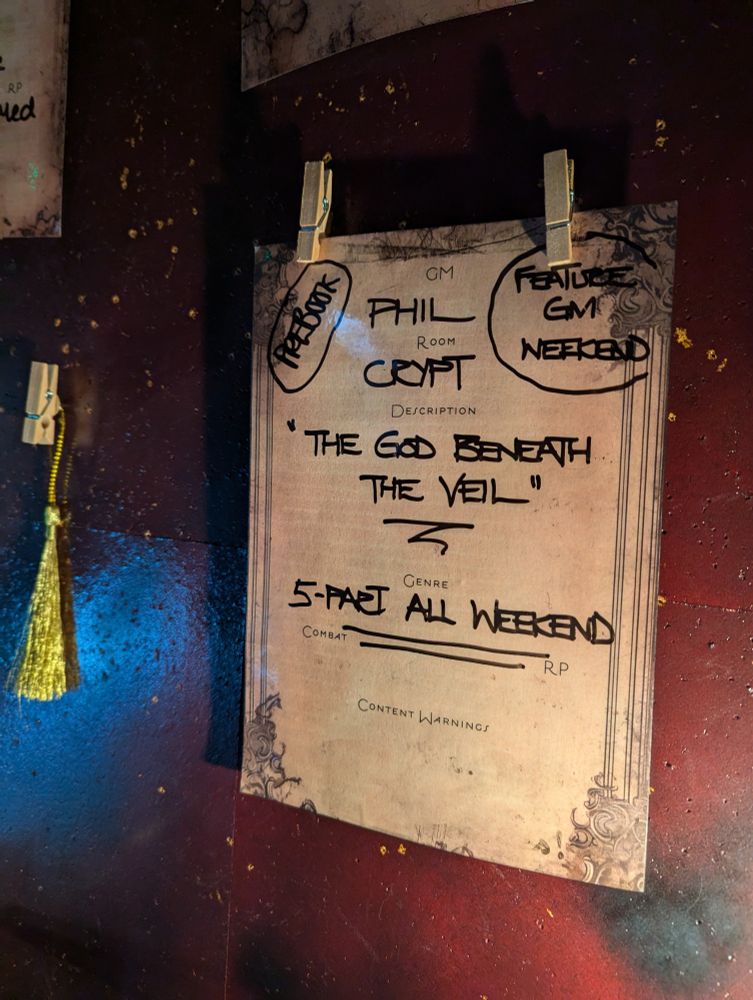 RP
GM
PREBOOK
PHIL
FEATURE
GM
WEEKEND
ROOM
CRYPT
DESCRIPTION
"THE GOD BENEATH
THE VEIL"
GENRE
5-PART ALL WEEKEND
COMBAT
RP
CONTENT WARNINGS